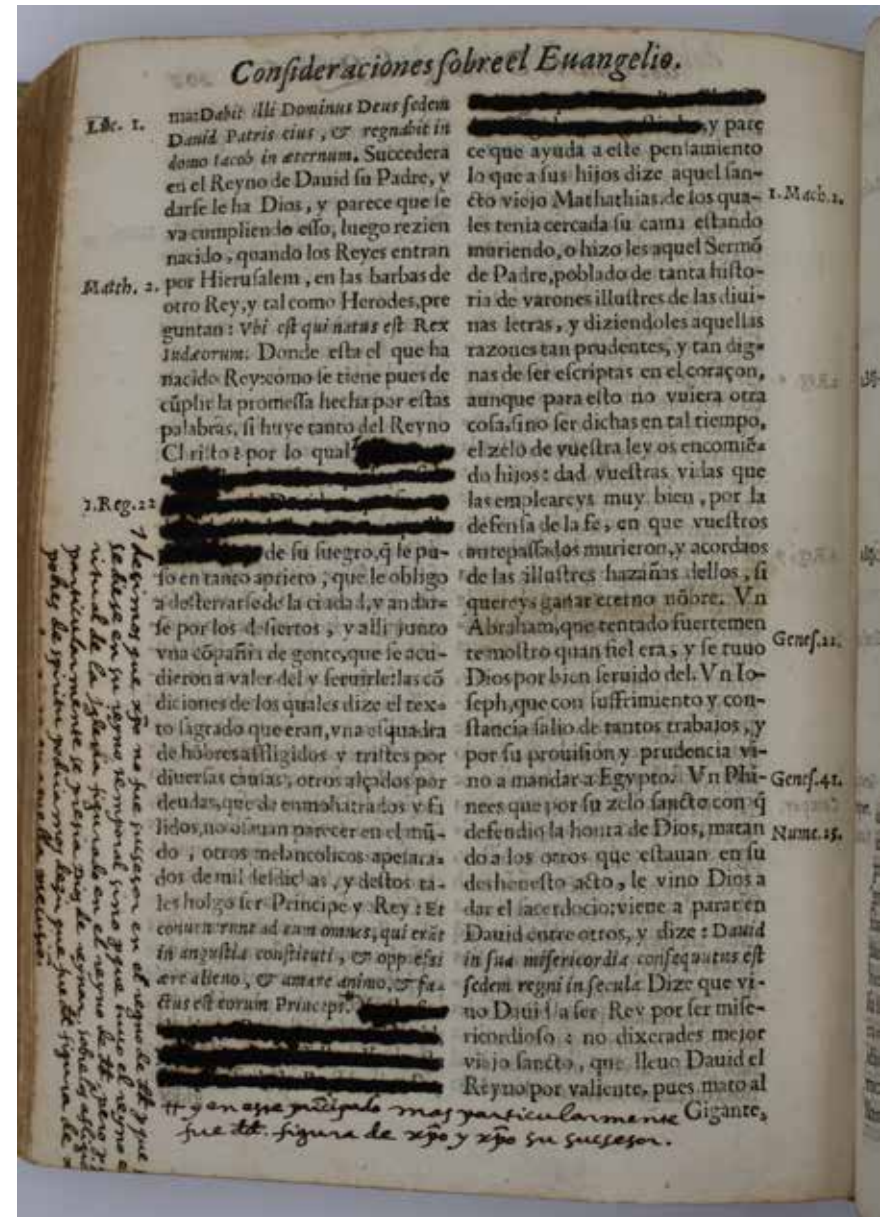 Consideraciones sobre el Euangelio.
Luc. 1.
ma: Dabit illi Dominus Deus sedem
Dauid Patris eius, & regnabit in
domo Iacob in æternum. Succedera
en el Reyno de Dauid su Padre, y
darse le ha Dios, y parece que se
va cumpliendo esso, luego rezien
nacido, quando los Reyes entran
Matth. 2.
por Hierusalem, en las barbas de
otro Rey, y tal como Herodes, pre
guntan: Vbi est qui natus est Rex
Iudæorum. Donde esta el que ha
nacido Rey: como se tiene pues de
cũplir la promessa hecha por estas
palabras, si huye tanto del Reyno
Christo? por lo qual
1.Reg.22
de su suegro, q̃ le pu-
so en tanto aprieto, que le obligo
a desterrarse de la ciudad, y andar-
se por los desiertos, y alli junto
vna cõpañia de gente, que se acu-
dieron a valer del y seruirle: las cõ
diciones de los quales dize el tex-
to sagrado que eran, vna esquadra
de hõbres affligidos y tristes por
diuersas causas, otros alçados por
deudas, que de enmohatrados y fa
lidos, no osauan parecer en el mũ-
do, otros melancolicos apesara-
dos de mil desdichas, y destos ta-
les holgo ser Principe y Rey: Et
conuenerunt ad eum omnes, qui erãt
in angustia constituti, & oppressi
ære alieno, & amaro animo, & fa-
ctus est eorum Princeps.
y pare
ce que ayuda a este pensamiento
lo que a sus hijos dize aquel san-
cto viejo Mathathias, de los qua-
1.Mach.2.
les tenia cercada su cama estando
muriendo, o hizo les aquel Sermõ
de Padre, poblado de tanta histo-
ria de varones illustres de las diui-
nas letras, y diziendoles aquellas
razones tan prudentes, y tan dig-
nas de ser escriptas en el coraçon,
aunque para esto no vuiera otra
cosa, sino ser dichas en tal tiempo,
el zelo de vuestra ley os encomiẽ-
do hijos: dad vuestras vidas que
las empleareys muy bien, por la
defensa de la fe, en que vuestros
antepassados murieron, y acordaos
de las illustres hazañas dellos, si
quereys ganar eterno nõbre. Vn
Abraham, que tentado fuertemen
te mostro quan fiel era, y se tuuo
Genes.22.
Dios por bien seruido del. Vn Io-
seph, que con suffrimiento y con-
stancia salio de tantos trabajos, y
por su prouision y prudencia vi-
no a mandar a Egypto. Vn Phi-
Genes.41.
nees que por su zelo sancto con q̃
defendio la honra de Dios, matan
Nume.25.
do a los otros que estauan en su
deshonesto acto, le vino Dios a
dar el sacerdocio: viene a parar en
Dauid entre otros, y dize: Dauid
in sua misericordia consequutus est
sedem regni in secula. Dize que vi-
no Dauid a ser Rey por ser mise-
ricordioso: no dixerades mejor
viejo sancto, que lleuo Dauid el
Reyno por valiente, pues mato al
Gigante,
desimos que xp̃o no fue susesor en el regno de dd y que
se hese en su reyno temporal sino que tuvo el reyno
ritual de la Iglesia figurado en el reyno de dd, pero
particularmente se presia Dios de reynar sobre los
pobres de spiritu podriamos desir que fue dd figura de
en aquella
y en esse prĩcipado mas particularmente
fue dd. figura de xp̃o y xp̃o su susesor.